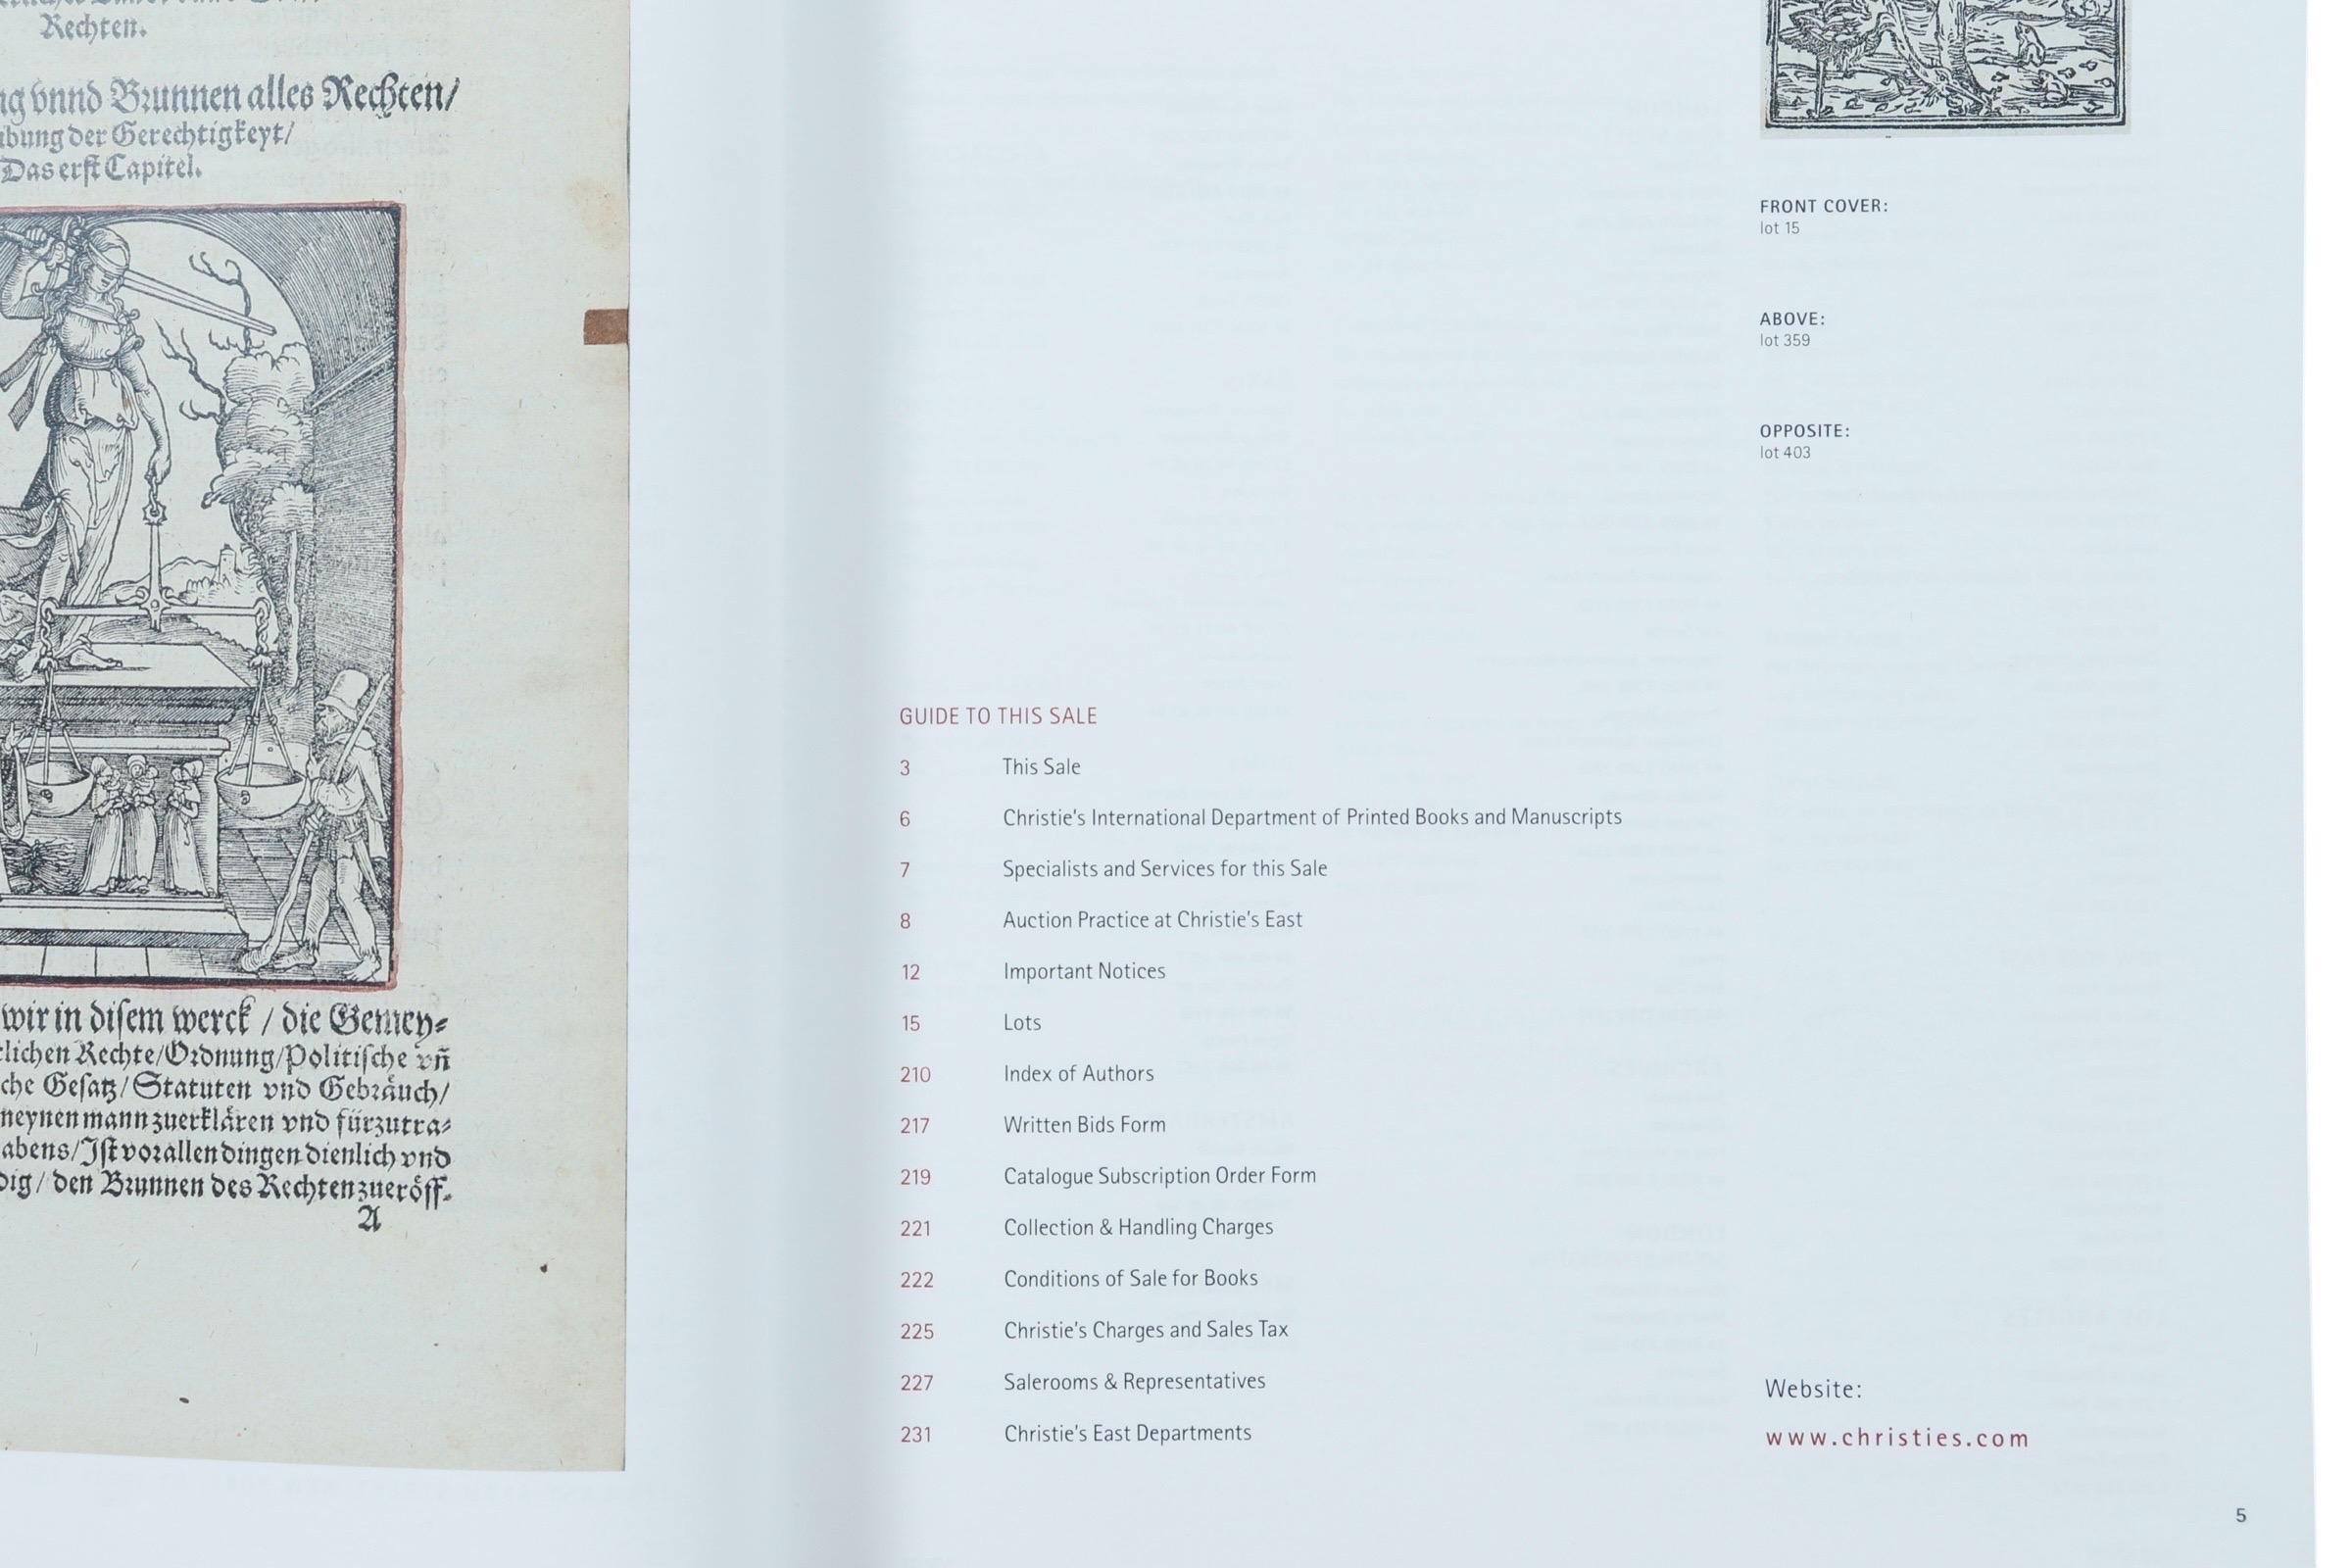 Rechten.
vnnd Brunnen alles Rechten/
der Gerechtigkeyt/
Das erst Capitel.
wir in disem werck / die Gemey⸗
lichen Rechte/Ordnung/Politische vñ
che Gesatz/Statuten vnd Gebräuch/
neynen mann zuerklären vnd fürzutra⸗
abens/Ist vor allen dingen dienlich vnd
dig/ den Brunnen des Rechten zueröff⸗
A
FRONT COVER:
lot 15
ABOVE:
lot 359
OPPOSITE:
lot 403
GUIDE TO THIS SALE
3 This Sale
6 Christie's International Department of Printed Books and Manuscripts
7 Specialists and Services for this Sale
8 Auction Practice at Christie's East
12 Important Notices
15 Lots
210 Index of Authors
217 Written Bids Form
219 Catalogue Subscription Order Form
221 Collection & Handling Charges
222 Conditions of Sale for Books
225 Christie's Charges and Sales Tax
227 Salerooms & Representatives
231 Christie's East Departments
Website:
www.christies.com
5